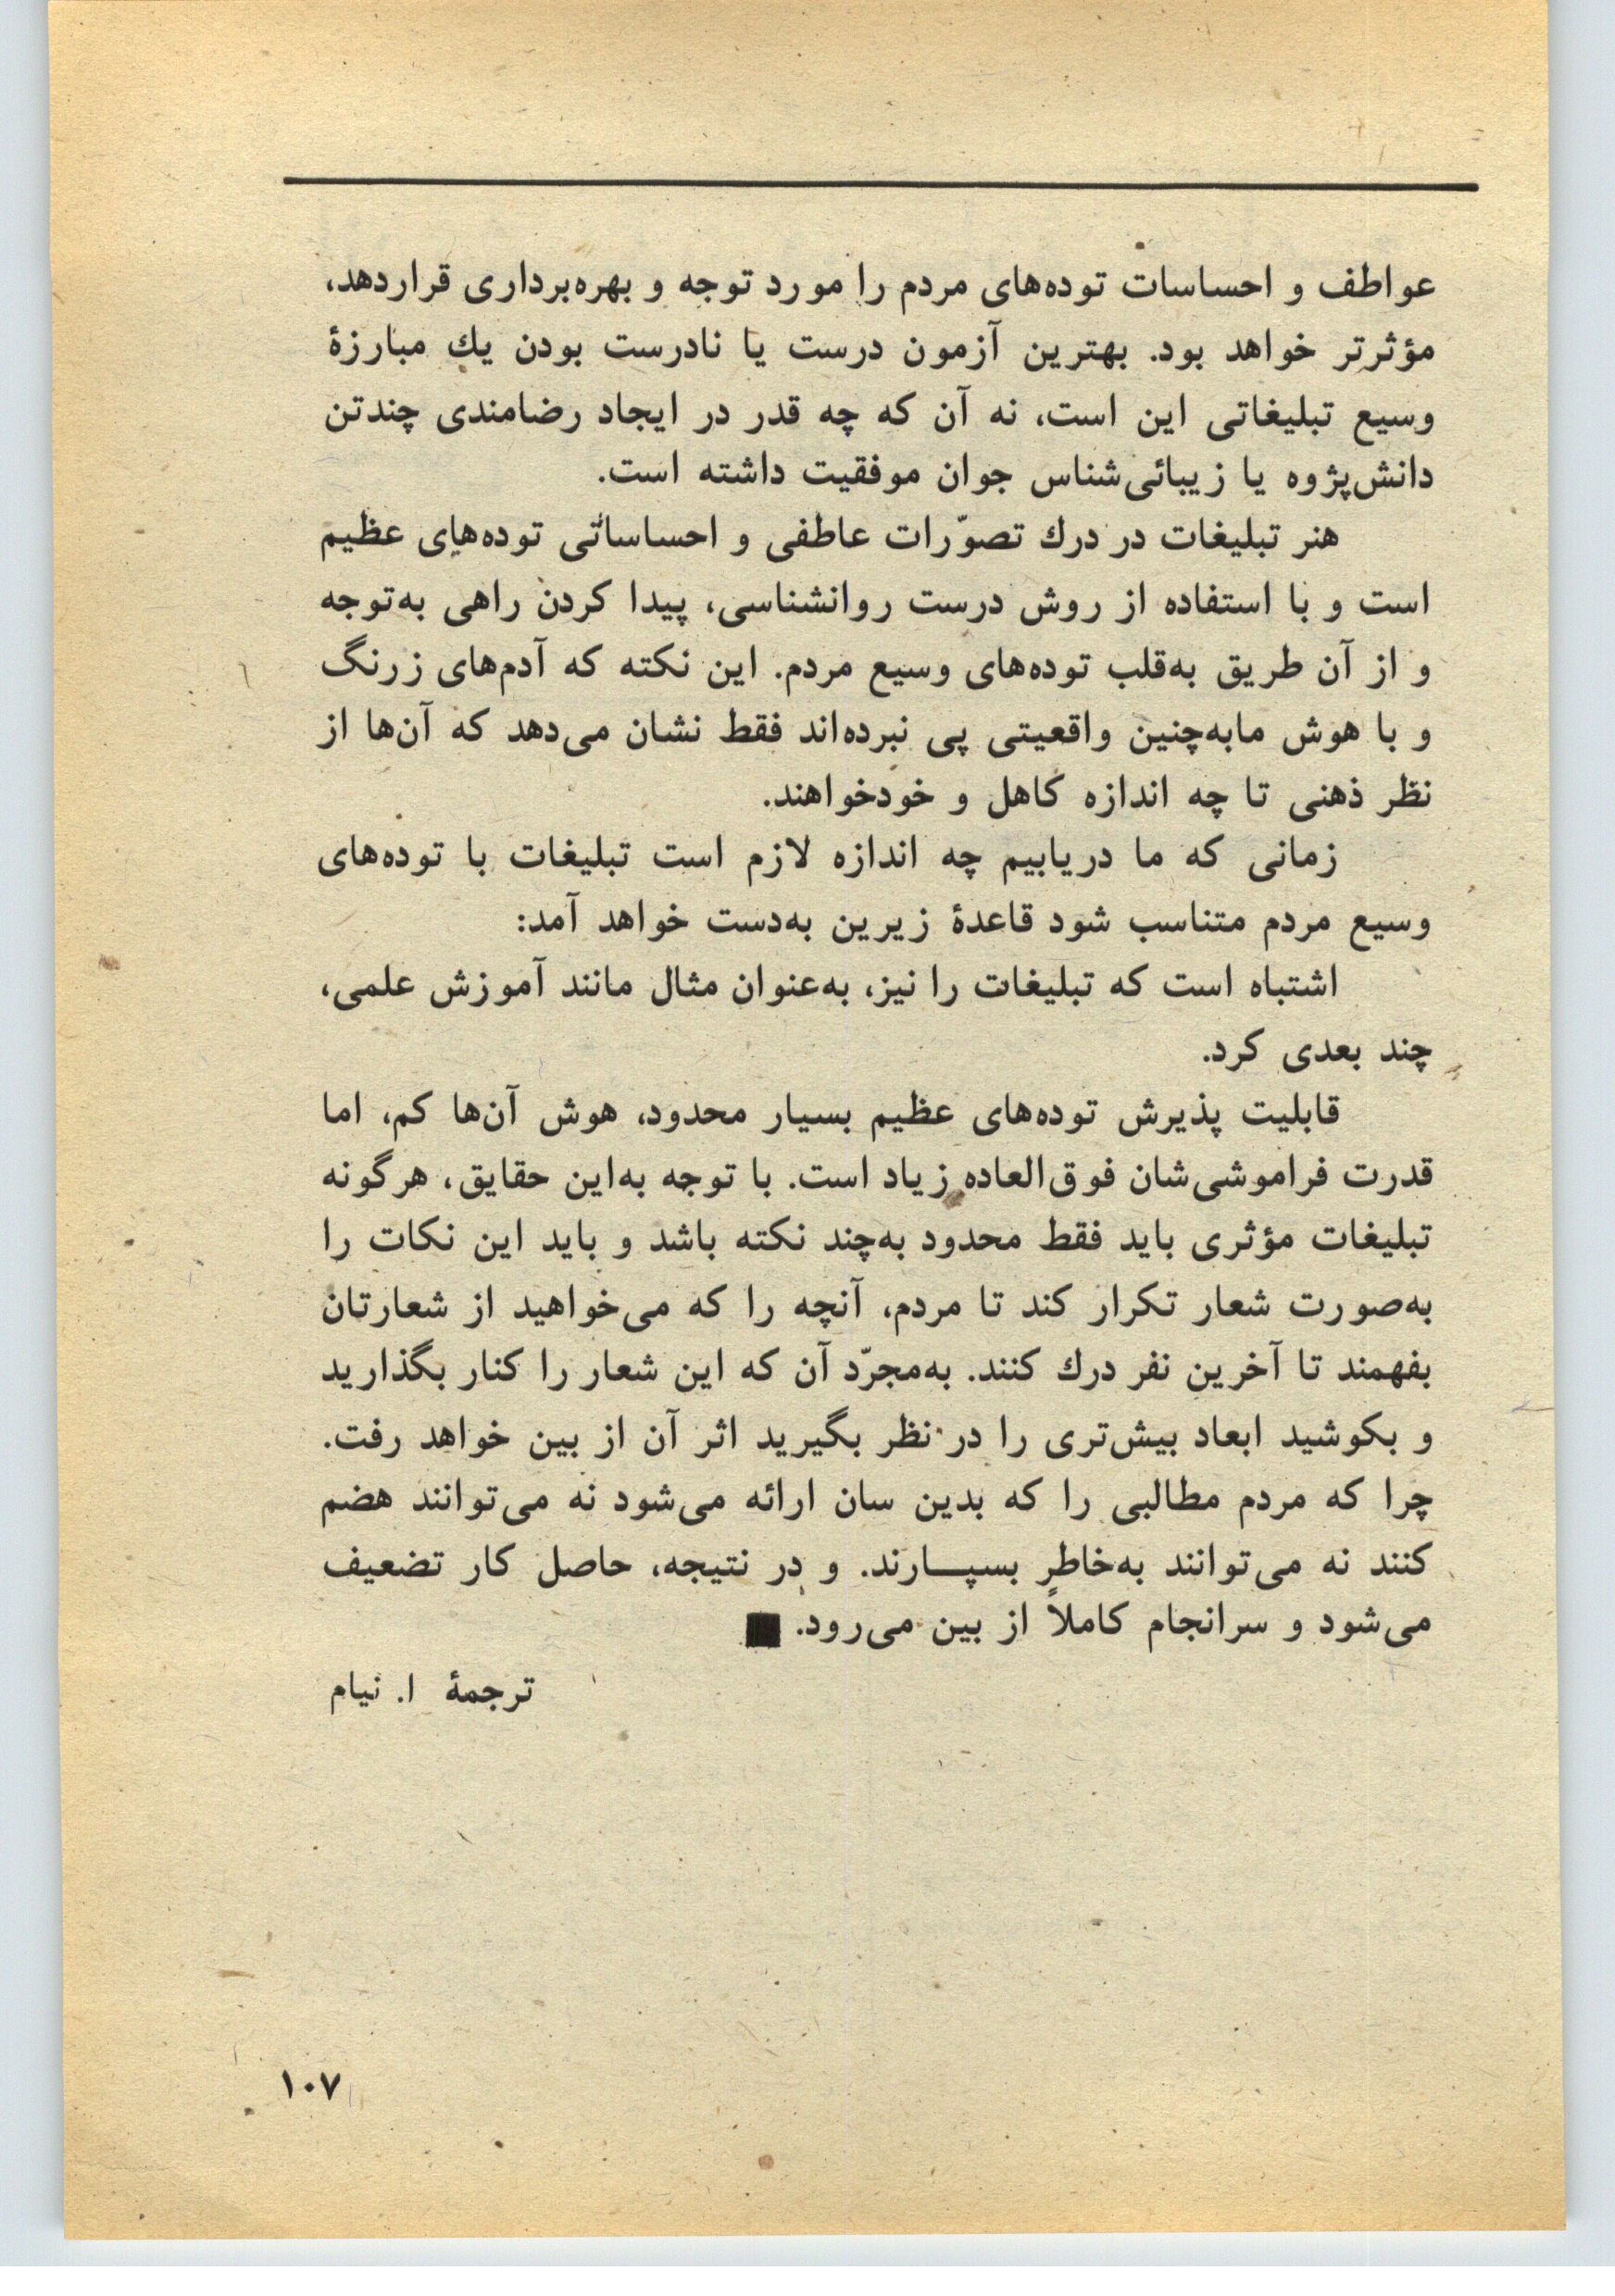 عواطف و احساسات توده‌های مردم را مورد توجه و بهره‌برداری قراردهد،
مؤثرتر خواهد بود. بهترین آزمون درست یا نادرست بودن یك مبارزهٔ
وسیع تبلیغاتی این است، نه آن که چه قدر در ایجاد رضامندی چندتن
دانش‌پژوه یا زیبائی‌شناس جوان موفقیت داشته است.
هنر تبلیغات در درك تصوّرات عاطفی و احساساتی توده‌های عظیم
است و با استفاده از روش درست روانشناسی، پیدا کردن راهی به‌توجه
و از آن طریق به‌قلب توده‌های وسیع مردم. این نکته که آدم‌های زرنگ
و با هوش مابه‌چنین واقعیتی پی نبرده‌اند فقط نشان می‌دهد که آن‌ها از
نظر ذهنی تا چه اندازه کاهل و خودخواهند.
زمانی که ما دریابیم چه اندازه لازم است تبلیغات با توده‌های
وسیع مردم متناسب شود قاعدهٔ زیرین به‌دست خواهد آمد:
اشتباه است که تبلیغات را نیز، به‌عنوان مثال مانند آموزش علمی،
چند بعدی کرد.
قابلیت پذیرش توده‌های عظیم بسیار محدود، هوش آن‌ها کم، اما
قدرت فراموشی‌شان فوق‌العاده زیاد است. با توجه به‌این حقایق، هرگونه
تبلیغات مؤثری باید فقط محدود به‌چند نکته باشد و باید این نکات را
به‌صورت شعار تکرار کند تا مردم، آنچه را که می‌خواهید از شعارتان
بفهمند تا آخرین نفر درك کنند. به‌مجرّد آن که این شعار را کنار بگذارید
و بکوشید ابعاد بیش‌تری را در نظر بگیرید اثر آن از بین خواهد رفت.
چرا که مردم مطالبی را که بدین سان ارائه می‌شود نه می‌توانند هضم
کنند نه می‌توانند به‌خاطر بسپـــارند. و در نتیجه، حاصل کار تضعیف
می‌شود و سرانجام کاملاً از بین می‌رود. ■
ترجمهٔ ا. نیام
۱۰۷